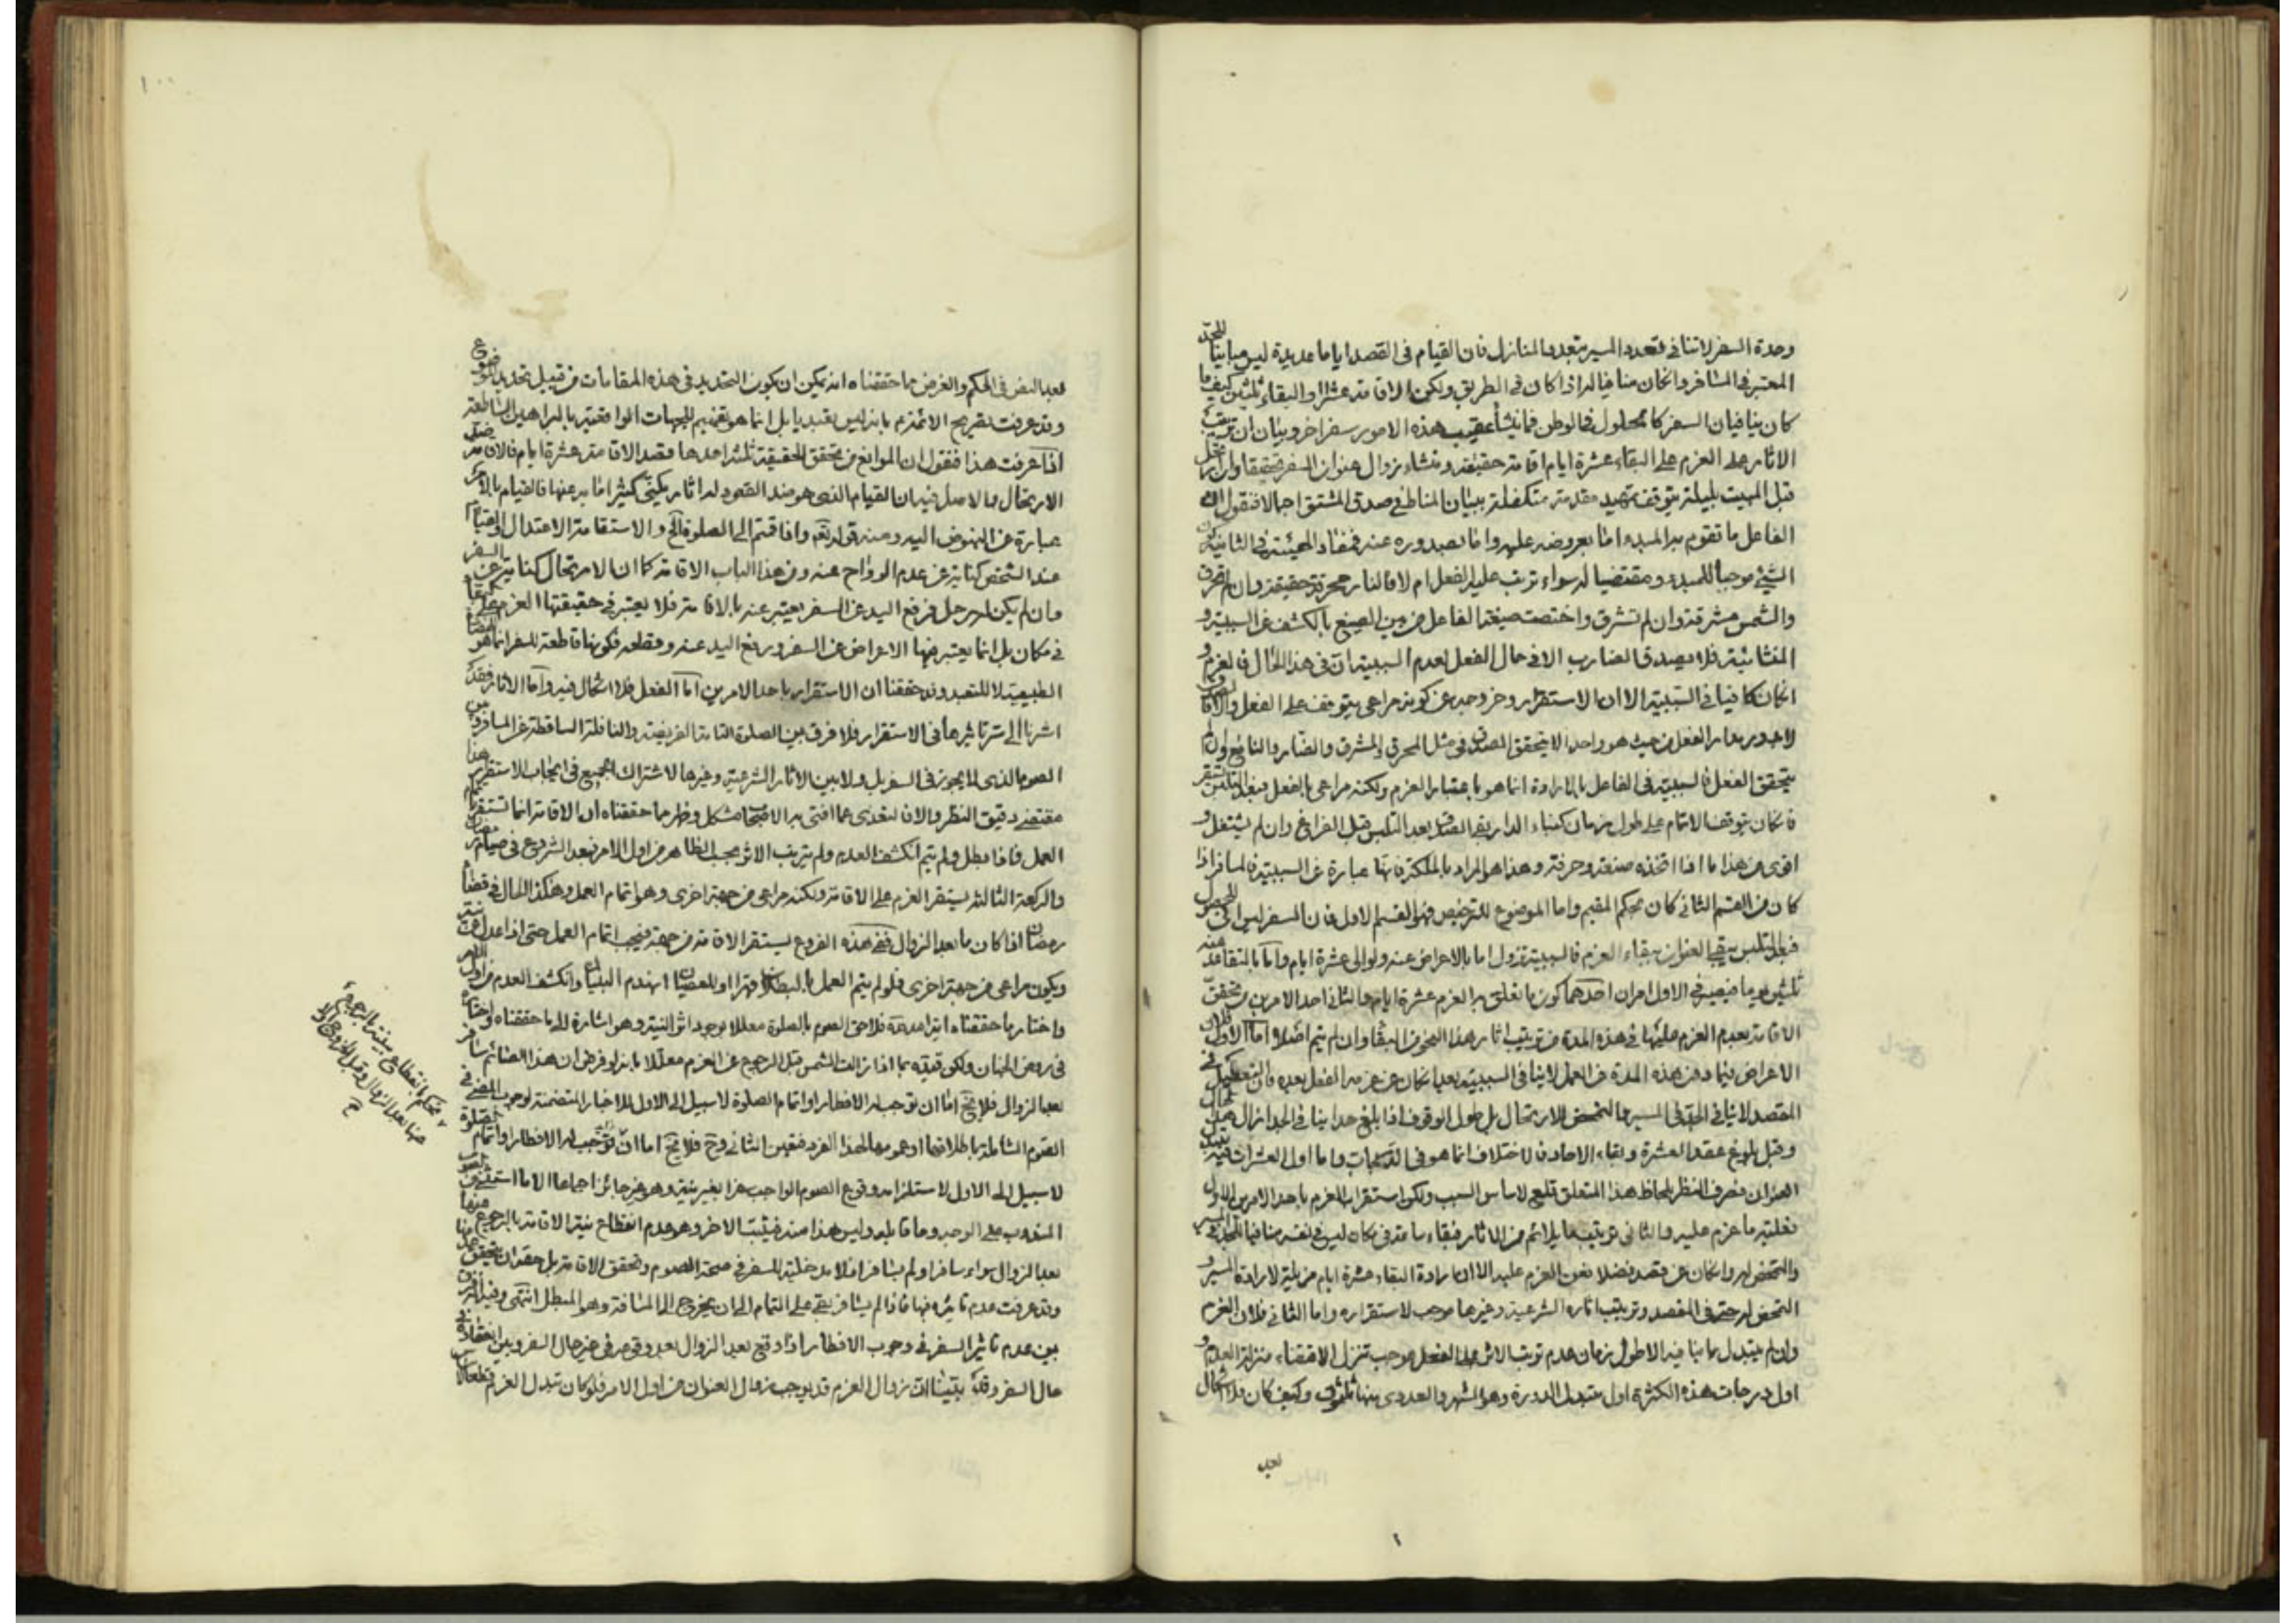 وحدة السفر لا تنافي تعدد السير بتعدد المنازل فان القيام في القصد اياما عديدة ليس مباينا للجد
المعتبر في المسافر وانكان منافيا له اذا كان في الطريق ولكن الاقامة عشرا او البقاء ثلثين كيف ما
كان ينافيان السفر كالحلول في الوطن فما ينشأ عقيب هذه الامور سفر اخر وبيان ان ترتيب
الاثار على العزم على البقاء عشرة ايام اقامة حقيقة ومنشاء زوال عنوان السفر حقيقة وان
قبل المبيت بليلة يتوقف تمهيد مقدمة متكفلة ببيان المناط في صدق المشتق اجمالا فنقول
الفاعل ما تقوم به المبدء اما بعروضه عليه واما بصدوره عنه فمفاد الهيئة في الثانية كون
الشيء موجبا للمبدء ومقتضيا له سواء ترتب عليه الفعل ام لا فالنار محرقة حقيقة وان لم تحرق
والشمس مشرقة وان لم تشرق واختصت صيغة الفاعل من بين الصيغ بالكشف عن السببية و
المنشائية فلا يصدق الضارب الا في حال الفعل لعدم السببية الا في هذا الحال فالعزم و
انكان كافيا في السببية الا ان الاستقرار وخروجه عن كونه مراعى يتوقف على الفعل والا
لا يدور مدار الفعل من حيث هو واحد الا يتحقق الصدق في مثل المحرق والمشرق والضار والنافع ولو لم
يتحقق الفعل فالسببية في الفاعل بالارادة انما هو باعتبار العزم ولكنه مراعى بالفعل فبعد التلبس يستقر
فانكان توقف الاتمام على طول زمان كبناء الدار بقي الصدق بعد التلبس قبل الفراغ وان لم يشتغل و
اقوى من هذا ما اذا اتخذه صنعة وحرفة وهذا هو المراد بالملكة فانها عبارة عن السببية فالمسافر اذا
كان من القسم الثاني كان بحكم المقيم واما الموضوع للترخيص فهو القسم الاول فان السفر ليس اني الحصول
فبعد التلبس يبقى العنوان ببقاء العزم فالسببية تزول اما بالاعراض عنه ولو الى عشرة ايام واما بالتقاعد عنه
ثلثين يوما فيعتبر في الاول امران احدهما كون ما تعلق به العزم عشرة ايام والثاني احد الامرين من تحقق
الاقامة بعدم العزم عليها في هذه المدة من ترتيب اثار هذا النحو من البقاء وان لم يتم اصلا اما الاول فلان
الاعراض فيما دون هذه المدة من العمل لا ينافي السببية بعد انكان من عزمه الفعل بعده فان التعطيل في
المقصد لا ينافي الجد في السير والتمحض للارتحال بل طول الوقوف اذا بلغ حدا ينافي الجد ازال
وقبل بلوغ عقد العشرة وبقاء الاحاد فالاختلاف انما هو في الدرجات واما اول العشرات
العنوان فصرف النظر بلحاظ هذا المتعلق قلع لاساس السبب ولكن استقرار العزم باحد الامرين الاول
فعلية ما عزم عليه والثاني ترتيب ما يلائم من الاثار فبقاء ساعة في مكان ليس في نفسه منافيا للجد في السير
والتمحض له وانكان عن قصد فضلا عن العزم عليه الا ان ارادة البقاء عشرة ايام مزيلة لارادة السير و
التمحض له حتى في المقصد وترتيب اثاره الشرعية وغيرها موجب لاستقراره واما الثاني فلان العزم
وان لم يتبدل بما ينافيه الا طول زمان عدم ترتيب الاثر على الفعل موجب تنزل الاقتضاء منزلة العدم و
اول درجات هذه الكثرة اول متبدل الدورة وهو الشهر والعددى منها ثلثون وكيف كان فلا اشكال
بعد
١٠٠
بعد النص في الحكم والغرض مما حققناه انه يمكن ان يكون التحديد في هذه المقامات من قبيل تحديد الموضوع
وقد عرفت تصريح الائمة بانه ليس تعبديا بل انما هو تفهيم للجهات الواقعية بالبراهين الساطعة
اذا عرفت هذا فنقول ان الموانع من تحقق الحقيقة ثلثة احدها قصد الاقامة عشرة ايام فالاقامة ضد
الارتحال والاصل فيه ان القيام الذي هو ضد القعود له اثار يكنى كثيرا ما به عنها فالقيام بالامر
عبارة عن النهوض اليه ومنه قوله تعالى واذا قمتم الى الصلوة الخ والاستقامة الاعتدال والقيام
عند الشخص كناية عن عدم الرواح عنه ومن هذا الباب الاقامة كما ان الارتحال كناية عن السفر
وان لم يكن له رحل فرفع اليد عن السفر يعتبر عنه بالاقامة فلا يعتبر في حقيقتها العزم على البقاء
في مكان بل انما يعتبر فيها الاعراض عن السفر ورفع اليد عنه وقطعه فكونها قاطعة للسفر انما هو
الطبيعية لا للتعبد وقد حققنا ان الاستقرار باحد الامرين اما الفعل فلا اشكال فيه واما الاثار فقد
اشرنا الى سر تاثيرها في الاستقرار فلا فرق بين الصلوة التامة الفريضة والنافلة الساقطة عن المسافر و
الصوم الذي لا يجوز في السفر بل ولا بين الاثار الشرعية وغيرها لاشتراك الجميع في ايجاب الاستقرار هذا
مقتضى دقيق النظر والان لتعدى عما افتى به الاصحاب مشكل وظهر مما حققناه ان الاقامة انما تستقر
العمل فاذا بطل ولم يتم انكشف العدم ولم يترتب الاثر بحسب الظاهر من اول الامر فبعد الشروع في صيام
والركعة الثالثة يستقر العزم على الاقامة ولكنه مراعى من جهة اخرى وهو اتمام العمل وهكذا الحال في قضاء
رمضان اذا كان ما بعد الزوال ففي هذه الفروع يستقر الاقامة من جهة فيجب اتمام العمل حتى اذا عدل
ويكون مراعى من جهة اخرى فلو لم يتم العمل بالبطلان قهرا او للعصيان انهدم البنيان وانكشف العدم من اول
واختار ما حققناه فلاحق الصوم بالصلوة معللا بوجود اثر النية وهو اشارة الى ما حققناه
في روض الجنان ولكن قيده بما اذا زالت الشمس قبل الرجوع عن العزم معللا بانه لو فرض ان هذا الصائم سافر
بعد الزوال فلا يخ اما ان توجب له الافطار او اتمام الصلوة لا سبيل الى الاول للاخبار المتضمنة لوجوب المضي في
الصوم الشاملة باطلاقها او عمومها لهذا الفرد فتعين الثاني وح فلا يخ اما ان توجب له الافطار او اتمام الصلوة
لا سبيل الى الاول لاستلزامه وقوع الصوم الواجب سفرا بغير نية وهو غير جائز اجماعا الا ما استثني
المندوب على الوجه وما قابله وليس هذا منه فيثبت الاخر وهو عدم انقطاع نية الاقامة بالرجوع عنها
بعد الزوال سواء سافر او لم يسافر اذ لا مدخلية للسفر في صحة الصوم وتحقق الاقامة بل حقه ان يتحقق
وقد عرفت عدم تاثيره فيها فاذا لم يسافر بقي على التمام الى ان يخرج الى المسافة وهو المطلوب انتهى وفيه
بين عدم تاثير السفر في وجوب الافطار اذا وقع بعد الزوال بعد وقوعه في غير حال السفر وبين انعقاده في
حال السفر وقد بيننا ان زوال العزم قد يوجب زوال العنوان من اول الامر فلو كان تبدل العزم
يحكم بانقطاع نية بالرجوع
عنها بعد الزوال وقبل الخروج